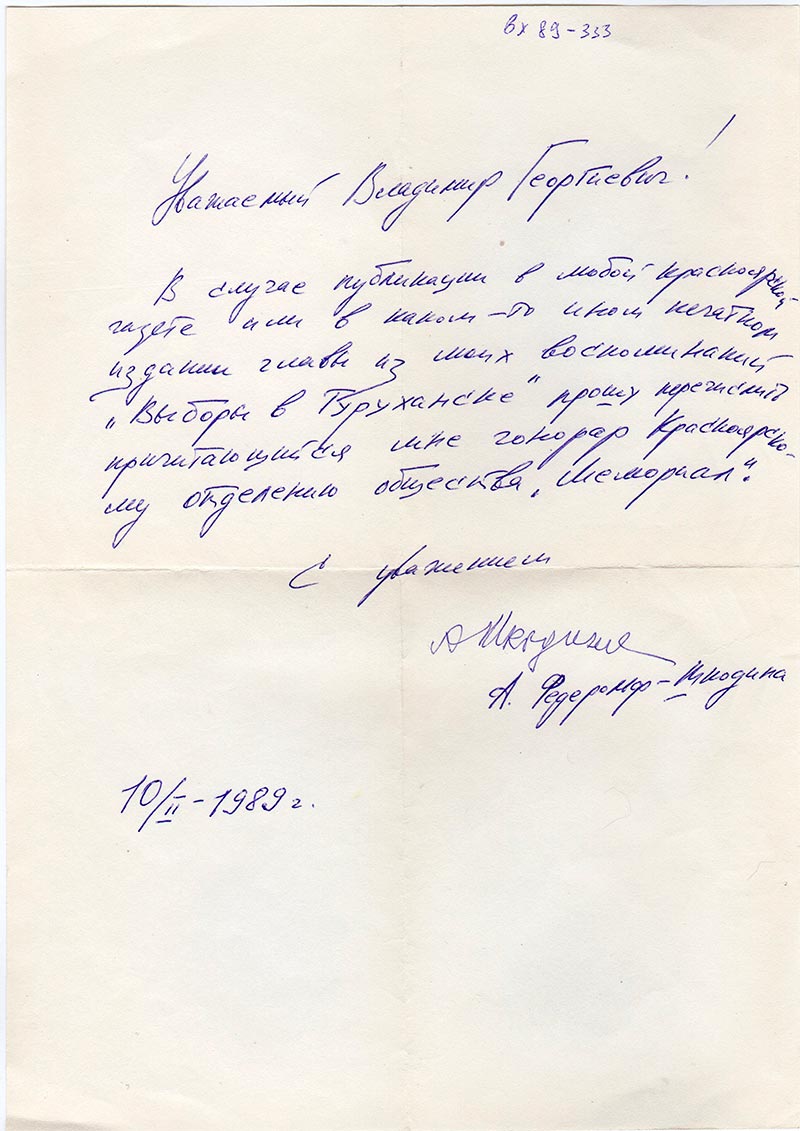 вх 89-333
Уважаемый Владимир Георгиевич!
В случае публикации в любой красноярской
газете или в каком-то ином печатном
издании главы из моих воспоминаний
„Выборы в Туруханске" прошу перечислить
причитающийся мне гонорар Красноярско-
му отделению общества „Мемориал".
С уважением
АШкодина
А. Федерольф-Шкодина
10/II-1989г.